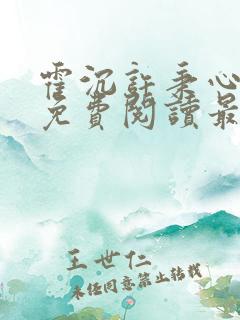 霍沉許秉心
免費閱讀最
王世仁
未经同意禁止转载